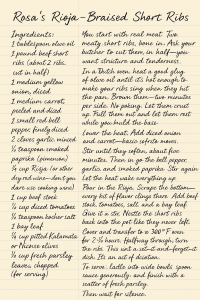 Rosa's Rioja-Braised Short Ribs
Ingredients:
1 tablespoon olive oil
2 pound beef short
ribs (about 2 ribs,
cut in half)
1 medium yellow
onion, diced
1 medium carrot,
peeled and diced
1 small red bell
pepper, finely diced
2 cloves garlic, minced
½ teaspoon smoked
paprika (pimenton)
¾ cup Rioja (or other
dry red wine—don't you
dare use cooking wine)
1 cup beef stock
½ cup diced tomatoes
½ teaspoon kosher salt
1 bay leaf
¼ cup pitted Kalamata
or Nicoise olives
½ cup fresh parsley
leaves, chopped
(for serving)
You start with real meat. Two
meaty short ribs, bone in. Ask your
butcher to cut them in half—you
want structure and tenderness.
In a Dutch oven, heat a good glug
of olive oil until it's hot enough to
make your ribs sing when they hit
the pan. Brown them—two minutes
per side. No poking. Let them crust
up. Pull them out and let them rest
while you build the base.
Lower the heat. Add diced onion
and carrot—basic sofrito moves.
Stir until they soften, about five
minutes. Then in go the bell pepper,
garlic, and smoked paprika. Stir again.
Let the heat wake everything up.
Pour in the Rioja. Scrape the bottom—
every bit of flavor clings there. Add beef
stock, tomatoes, salt, and a bay leaf.
Give it a stir. Nestle the short ribs
back into the pot like they never left.
Cover and transfer to a 300°F oven
for 2 ½ hours. Halfway through, turn
the ribs. This isn't a sit-it-and-forget-it
dish. It's an act of devotion.
To serve: ladle into wide bowls, spoon
sauce generously, and finish with a
scatter of fresh parsley.
Then wait for silence.